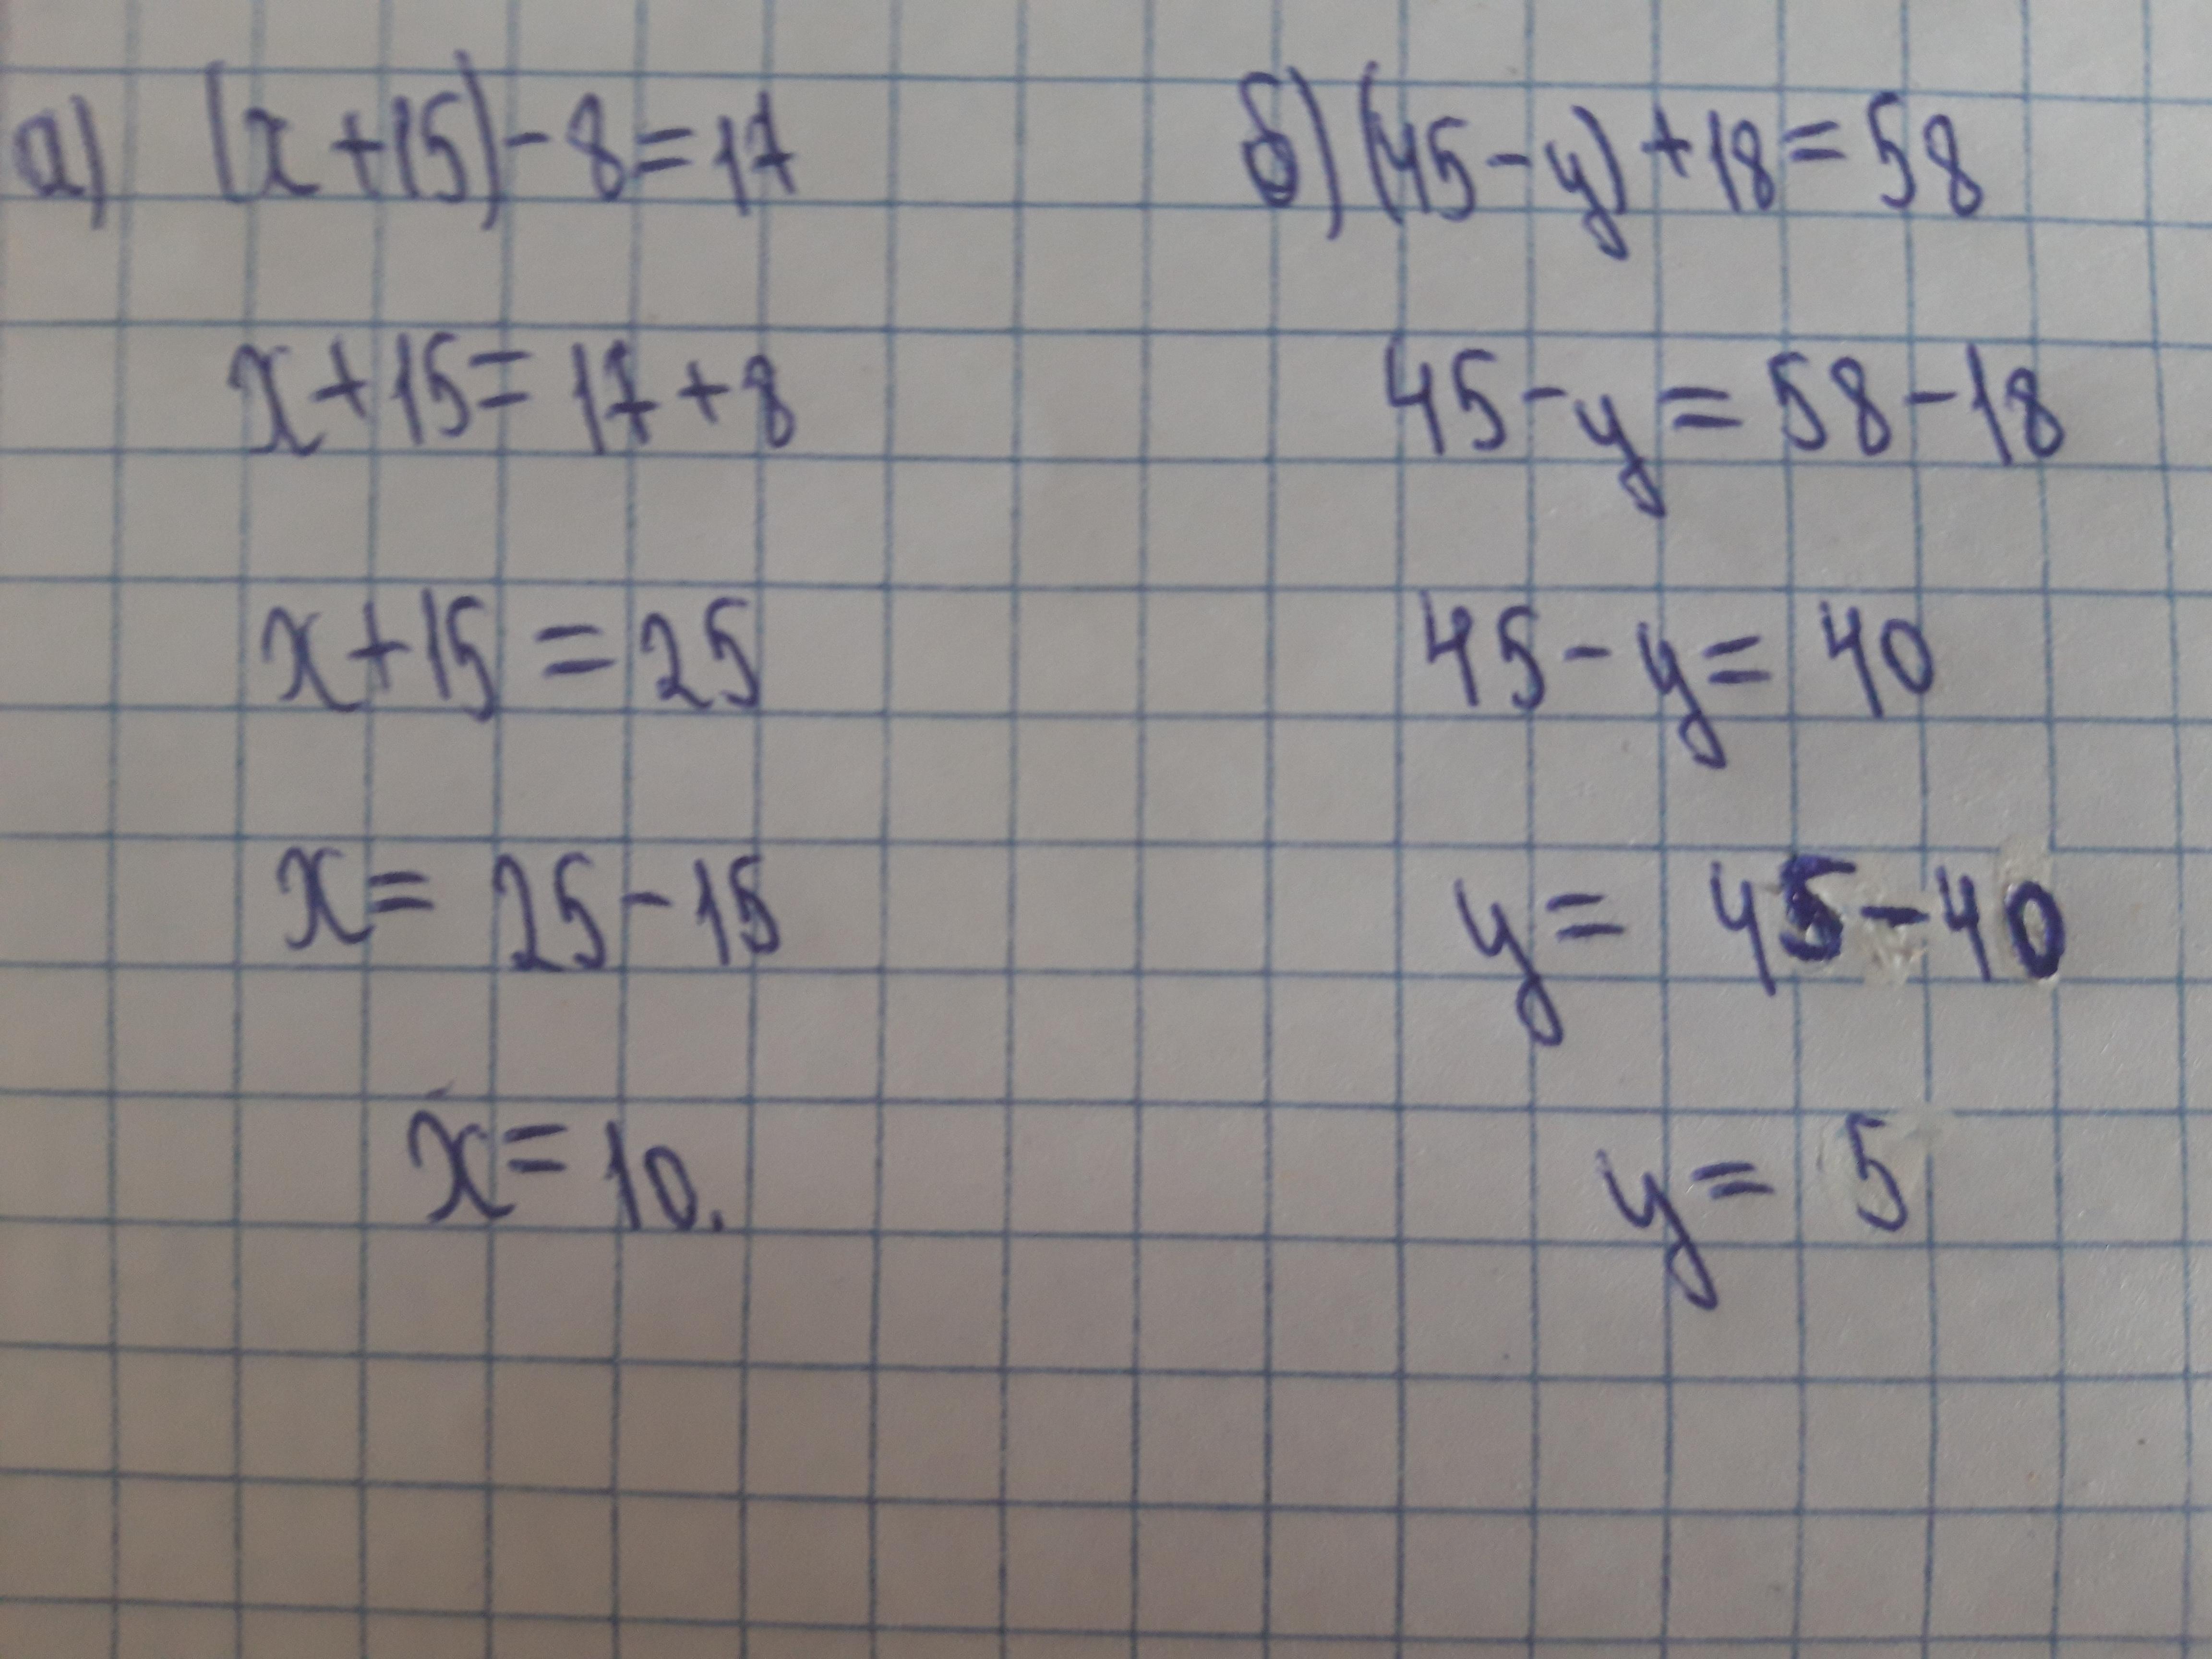 а) (x+15)-8=17
x+15=17+8
x+15=25
x=25-15
x=10.
б) (45-y)+18=58
45-y=58-18
45-y=40
y=45-40
y=5